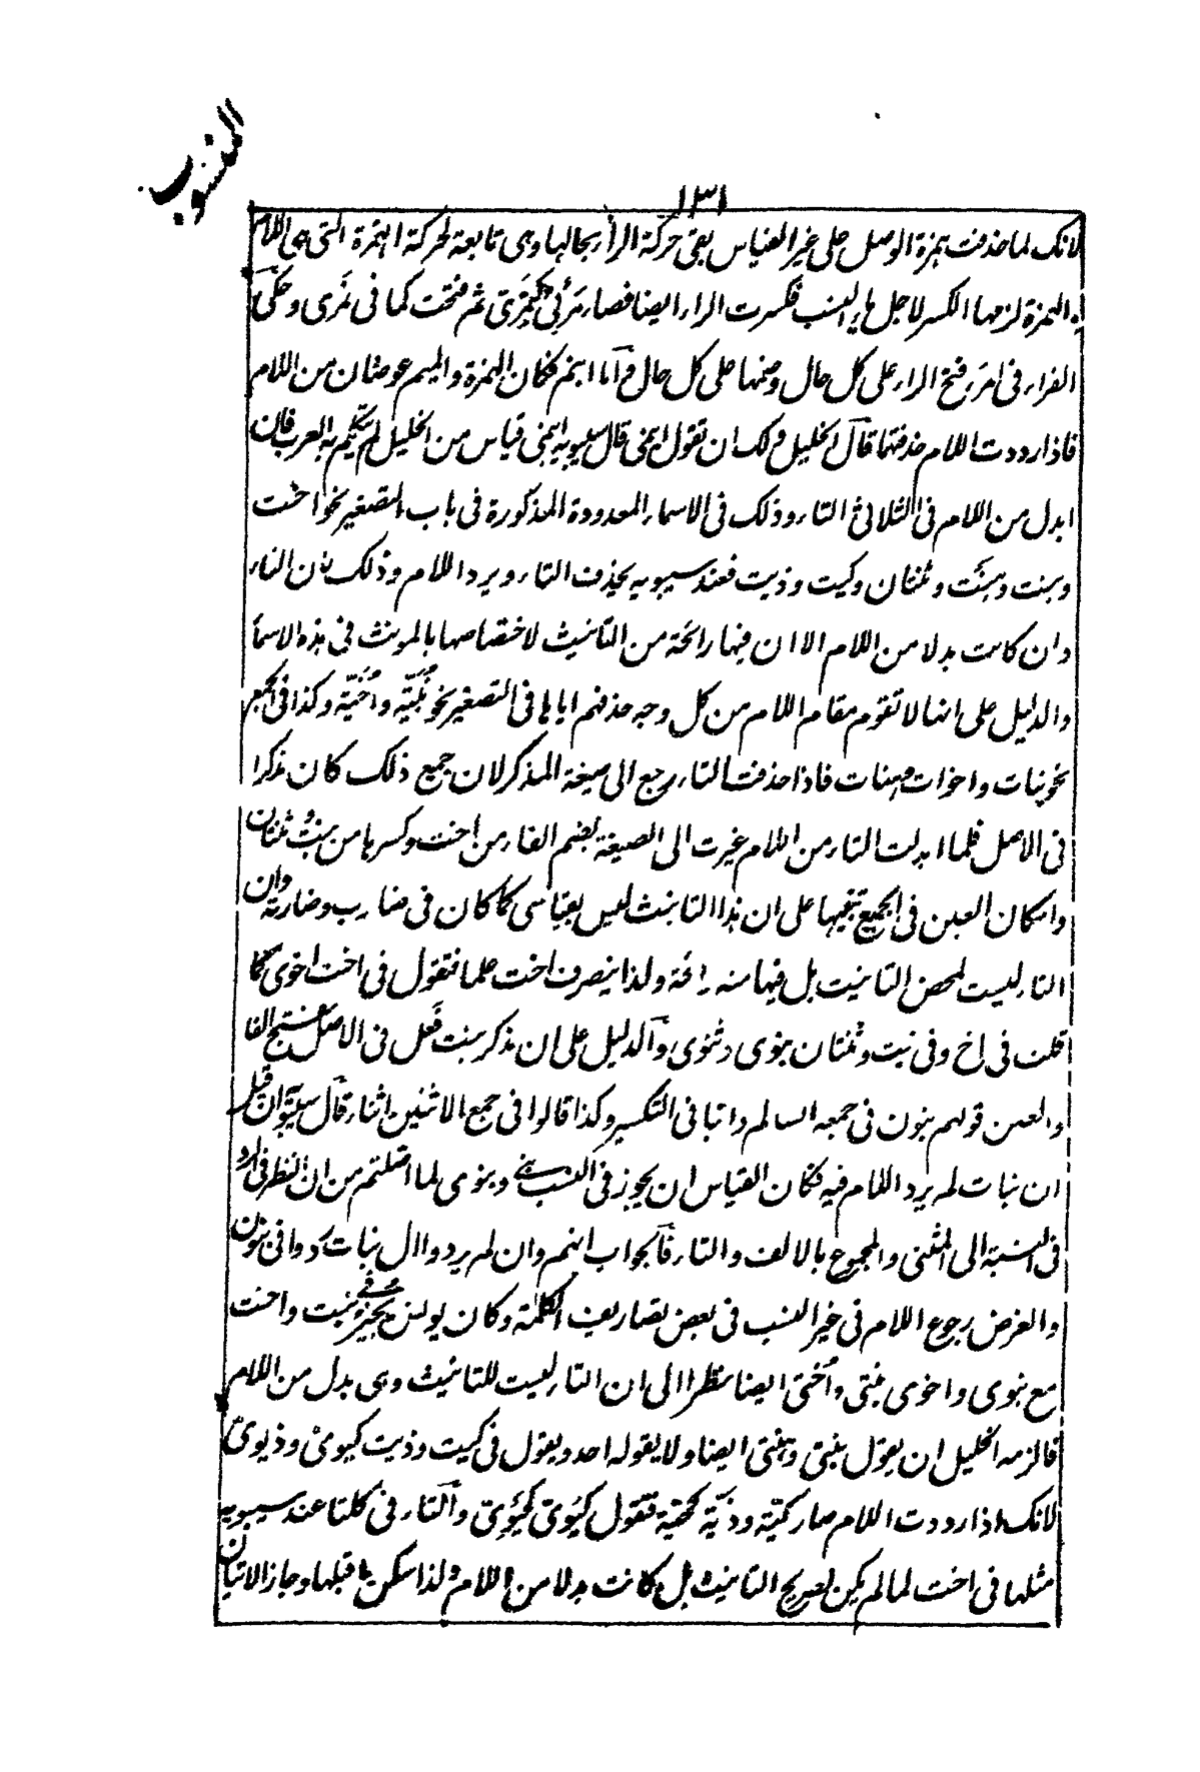 المنسوب
١٣١
لانك لما حذفت همزة الوصل على غير القياس بقى حركة الراء بحالها وهى تابعة لحركة الهمزة التى هى اللام
الهمزة لزمها الكسر لاجل ياء النسب فكسرت الراء ايضا فصار مَرِئى كنَمِرى ثم فتحت كما فى نَمَرى وحكى
الفراء فى امرء فتح الراء على كل حال وضمها على كل حال واما ابنم فكان الهمزة والميم عوضان من اللام
فاذا رددت اللام حذفتهما قال الخليل ولك ان تقول ابنمى قال سيبويه ابنمى قياس من الخليل لم يتكلم به العرب فان
ابدل من اللام فى الثلاثى التاء وذلك فى الاسماء المعدودة المذكورة فى باب التصغير نحو اخت
وبنت وهنت وثنتان وكيت وذيت فعند سيبويه يحذف التاء ويرد اللام وذلك لان التاء
وان كانت بدلا من اللام الا ان فيها رائحة من التانيث لاختصاصها بالمونث فى هذه الاسماء
والدليل على انها لا تقوم مقام اللام من كل وجه حذفهم اياها فى التصغير نحو بُنَيّة واُخَيّة وكذا فى الجمع
نحو بنات واخوات وهنات فاذا حذفت التاء رجع الى صيغة المذكر لان جميع ذلك كان مذكرا
فى الاصل فلما ابدلت التاء من اللام غيرت الى الصيغة بضم الفاء من اخت وكسرها من بنت وثنتان
واسكان العين فى الجميع تنبيها على ان هذا التانيث ليس بقياسى كما كان فى ضارب وضاربة وان
التاء ليست لمحض التانيث بل فيها منه رائحة ولذا ينصرف اخت علما فتقول فى اخت اخوى كما
قلت فى اخ وفى بنت وثنتان بنوى وثنوى والدليل على ان مذكر بنت فَعَل فى الاصل بفتح الفاء
والعين قولهم بنون فى جمعه السالم وابناء فى التكسير وكذا قالوا فى جمع الاثنين اثناء قال سيبويه ان قيل
ان بنات لم يرد اللام فيه فكان القياس ان يجوز فى النسب بنى وبنوى لما اصلتم من ان النظر فى الرد
فى النسبة الى المثنى والمجموع بالالف والتاء فالجواب انهم وان لم يردوا فى بنات ردوا فى بنون
والغرض رجوع اللام فى غير النسب فى بعض تصاريف الكلمة وكان يونس يجيز فى بنت واخت
مع بنوى واخوى بنتى واُختى ايضا نظرا الى ان التاء ليست للتانيث وهى بدل من اللام
فالزمه الخليل ان يقول بنتى وهنتى ايضا ولا يقوله احد ويقول فى كيت وذيت كيوى وذيوى
لانك اذا رددت اللام صار كيّة وذيّة كحيّة فتقول كَيَوى كحَيَوى والتاء فى كلتا عند سيبويه
مثلها فى اخت لما لم يكن لصريح التانيث بل كانت بدلا من اللام ولذا سكن ما قبلها وجاز الاتيان